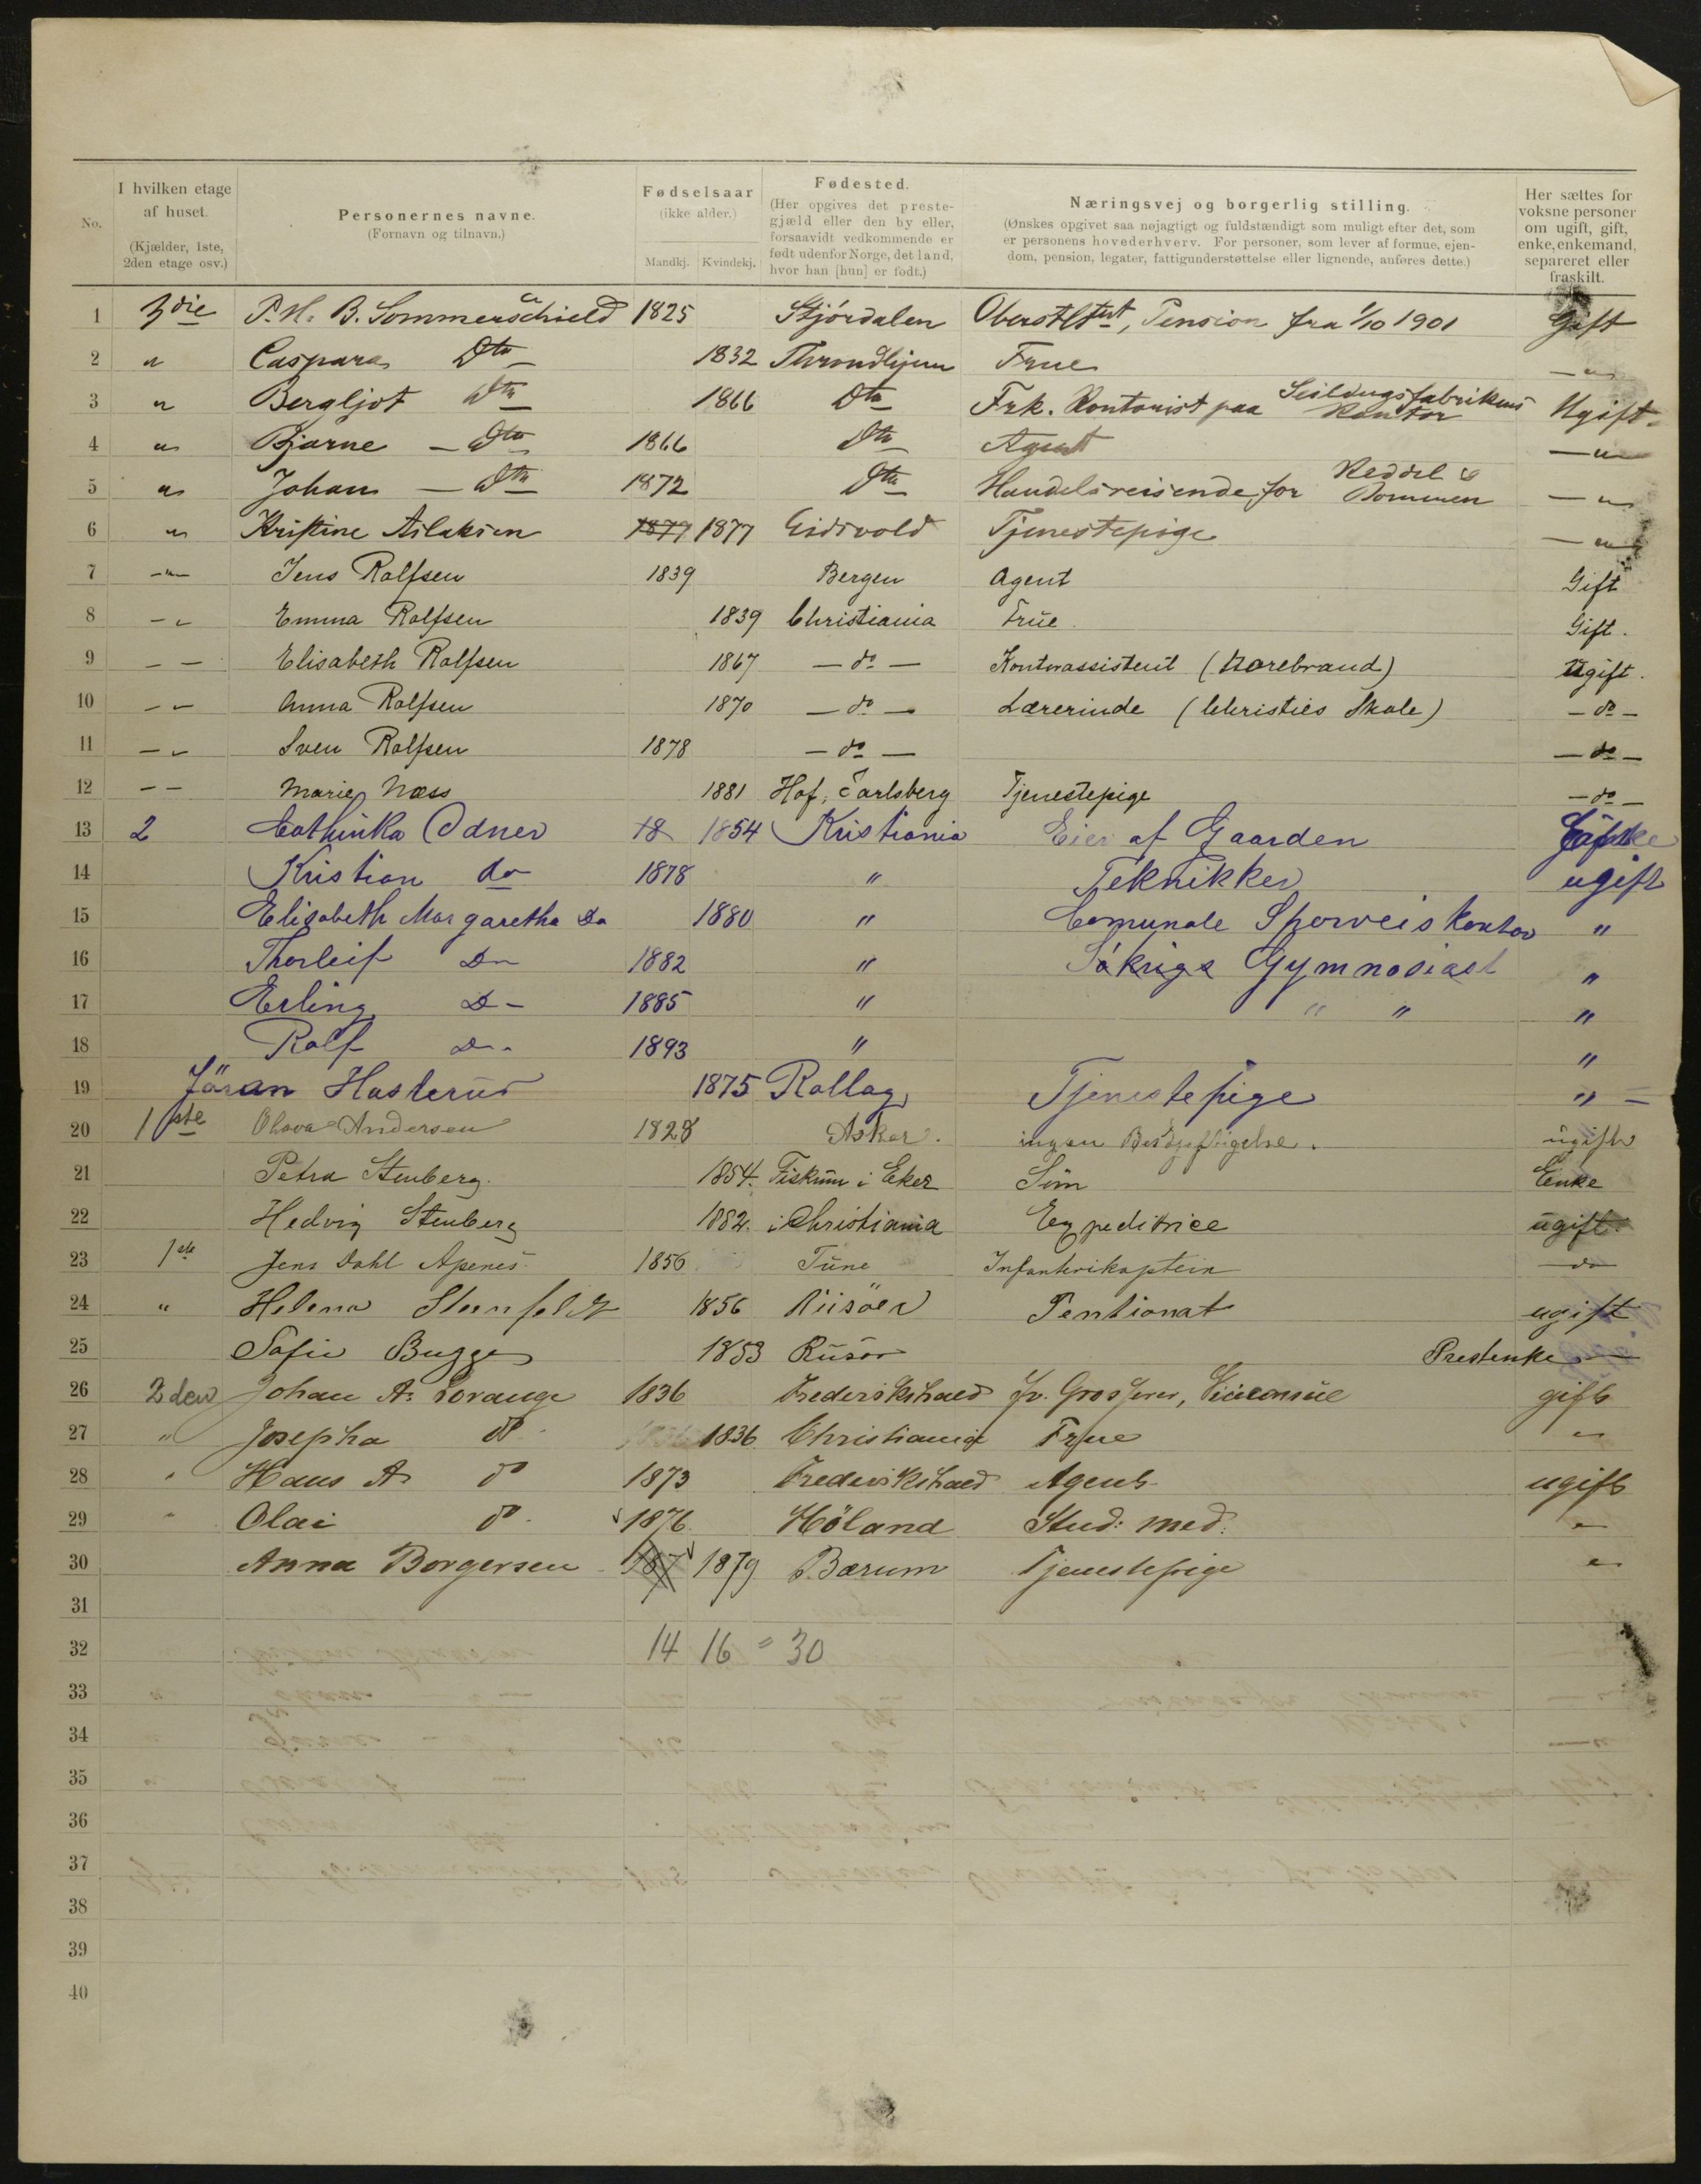 No.
I hvilken etage af huset. (Kjælder, 1ste, 2den etage osv.)
Personernes navne. (Fornavn og tilnavn.)
Fødselsaar (ikke alder.) Mandkj. Kvindekj.
Fødested. (Her opgives det prestegjæld eller den by eller, forsaavidt vedkommende er født udenfor Norge, det land, hvor han [hun] er født.)
Næringsvej og borgerlig stilling. (Ønskes opgivet saa nøjagtigt og fuldstændigt som muligt efter det, som er personens hovederhverv. For personer, som lever af formue, ejendom, pension, legater, fattigunderstøttelse eller lignende, anføres dette.)
Her sættes for voksne personer om ugift, gift, enke, enkemand, separeret eller fraskilt.
1 3die P. H. B. Sommerschield 1825 Stjørdalen Oberstltnt, Pension fra 1/10 1901 Gift
2 " Caspara Dto 1832 Throndhjem Frue — " —
3 " Bergljot Dto 1866 Dto Frk. Kontorist paa Seildugsfabrikens Kontor Ugift
4 " Bjarne — Dto 1866 Dto Agent — " —
5 " Johan — Dto 1872 Dto Handelsreisende for — " —
6 " Kristine Aslaksen 1877 1877 Eidsvold Tjenestepige — " —
7 — " — Jens Rolfsen 1839 Bergen Agent Gift
8 — " Emma Rolfsen 1839 Christiania Frue Gift.
9 — — Elisabeth Rolfsen 1867 — do — Kontorassistent (Norebrand) Ugift.
10 — " Anna Rolfsen 1870 — do — Lærerinde (Christies Skole) — do —
11 — " Sven Rolfsen 1878 — do — — do —
12 — — Marie Næss 1881 Hof, Jarlsberg Tjenestepige — do —
13 2 Cathinka Odner 18 1854 Kristiania Eier af Gaarden Enke
14 Kristian do 1878 " Teknikker ugift
15 Elisabeth Margaretha Do 1880 " Comunale Sporveiskontor "
16 Thorleif Do 1882 " Gymnasiast "
17 Erling Do 1885 " " " "
18 Rolf Do 1893 " "
19 Jöran Hasterud 1875 Rollag Tjenestepige " =
20 1ste Olava Andersen 1828 Asker. ingen Beskjæftigelse. ugift
21 Petra Stenberg. 1854. Fiskum i Eker Søm Enke
22 Hedvig Stenberg 1882. i Christiania Expeditrice ugift.
23 1ste Jens Dahl Apenes 1856 Tune Infanterikaptein do
24 " Helena Steenfeldt 1856 Riisöer Pentionat ugift
25 Sofie Bugge 1853 Risør Prestenke
26 2den Johan A. Lorange 1836 Frederikshald fv. Grosserer, Viceconsul gift
27 " Josepha do 1836 Christiania Frue "
28 " Hans A. do 1873 Frederikshald Agent ugift
29 " Olai do 1876 Höland Stud: med: "
30 Anna Borgersen 187 1879 Bærum Tjenestepige "
31
32 14 16 = 30
33
34
35
36
37
38
39
40